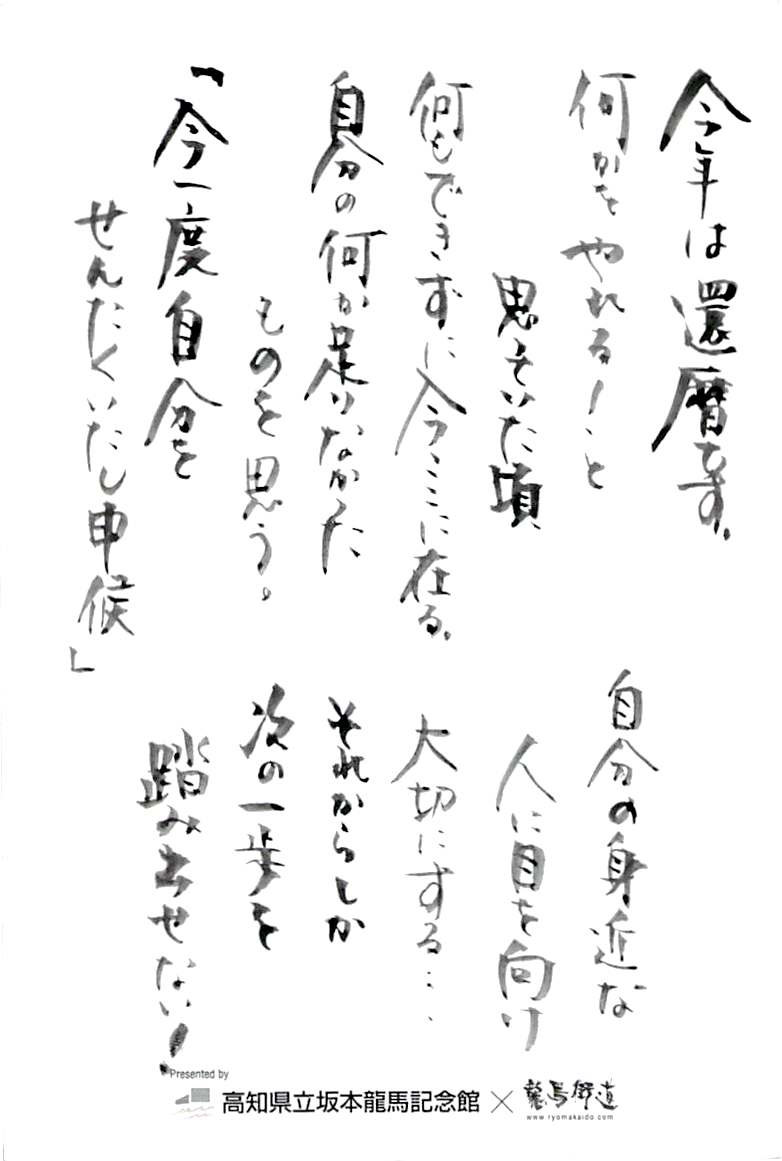 今年は還暦です。
何かをやれる!と
思っていた頃、
何もできずに今ここに在る。
自分の何が足りなかった
ものを思う。
「今一度自分を
せんたくいたし申候」
自分の身近な
人に目を向け
大切にする…
それからしか
次の一歩を
踏み出せない!
Presented by
高知県立坂本龍馬記念館×龍馬街道
www.ryomakaido.com